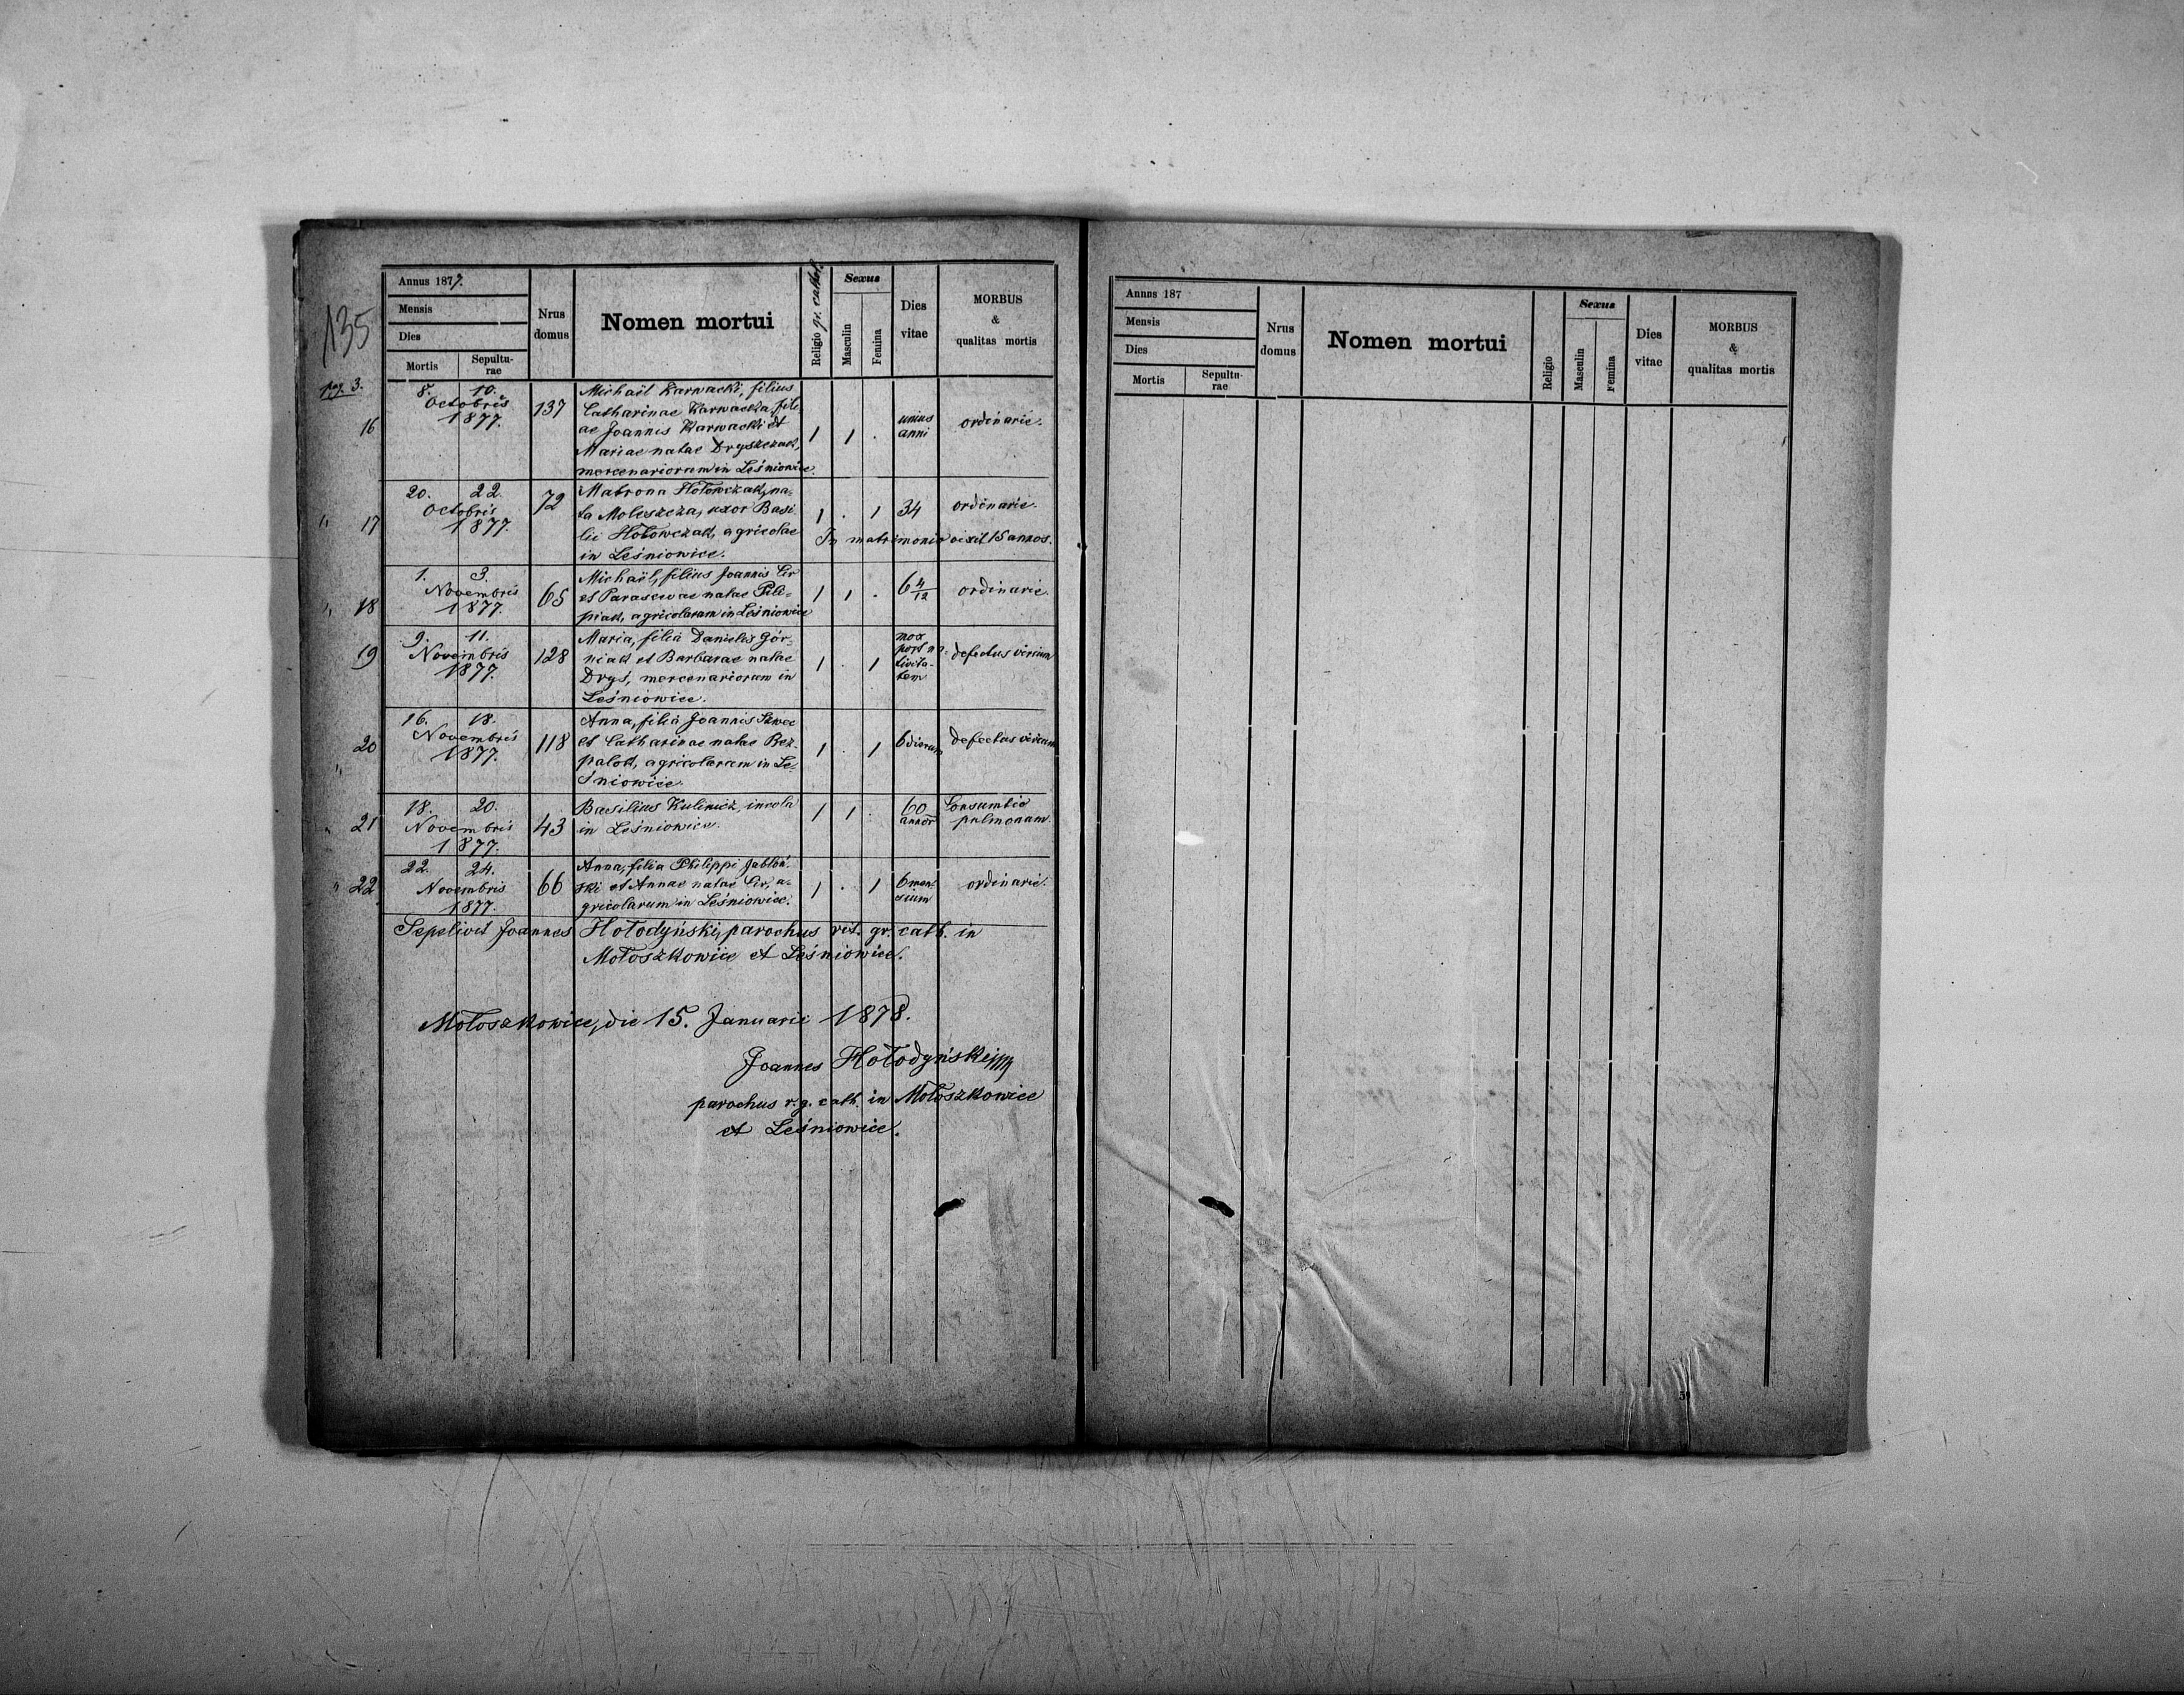 135
pag. 3.
Annus 1877.
Mensis
Dies
Mortis
Sepultu-
rae
Nrus
domus
Nomen mortui
Religio gr. cathol.
Sexus
Masculin
Femina
Dies
vitae
MORBUS
&
qualitas mortis
16
8. 10.
Octobris
1877.
137
Michaël Karwacki, filius
Catharinae Karwacka, fili-
ae Joannis Karwacki et
Mariae natae Dryszczak,
mercenariorum in Leśniowice.
1 1 .
unius
anni
ordinarie.
" 17
20. 22.
Octobris
1877.
72
Matrona Hołowczak, na-
ta Moloszcza, uxor Basi-
lii Hołowczak, agricolae
in Leśniowice.
1 . 1
34
ordinarie.
In matrimonio vixit 15 annos.
" 18
1. 3.
Novembris
1877.
65
Michaël, filius Joannis Cir
et Parascevae natae Pili-
piak, agricolarum in Leśniowice
1 1 .
6 4/12
ordinarie.
19
9. 11.
Novembris
1877.
128
Maria, filia Danielis Gór-
niak et Barbarae natae
Drys, mercenariorum in
Leśniowice.
1 . 1
mox
post na-
tivita-
tem
defectus virium
" 20
16. 18.
Novembris
1877.
118
Anna, filia Joannis
et Catharinae natae Bez-
palok, agricolarum in Le-
śniowice.
1 . 1
6 dierum
defectus virium
" 21
18. 20.
Novembris
1877.
43
Basilius Kulinicz, incola
in Leśniowice.
1 1 .
60
annor
Consumtio
pulmonum.
" 22
22. 24.
Novembris
1877.
66
Anna, filia Philippi Jabłoń-
ski et Annae natae Cir, a-
gricolarum in Leśniowice.
1 . 1
6 men-
sium
ordinarie.
Sepelivit Joannes Hołodyński, parochus rit. gr. cath. in
Mołoszkowice et Leśniowice.
Mołoszkowice, die 15. Januarii 1878.
Joannes Hołodyński mp
parochus r. g. cath. in Mołoszkowice
et Leśniowice.
Annus 187
Mensis
Dies
Mortis
Sepultu-
rae
Nrus
domus
Nomen mortui
Religio
Sexus
Masculin
Femina
Dies
vitae
MORBUS
&
qualitas mortis